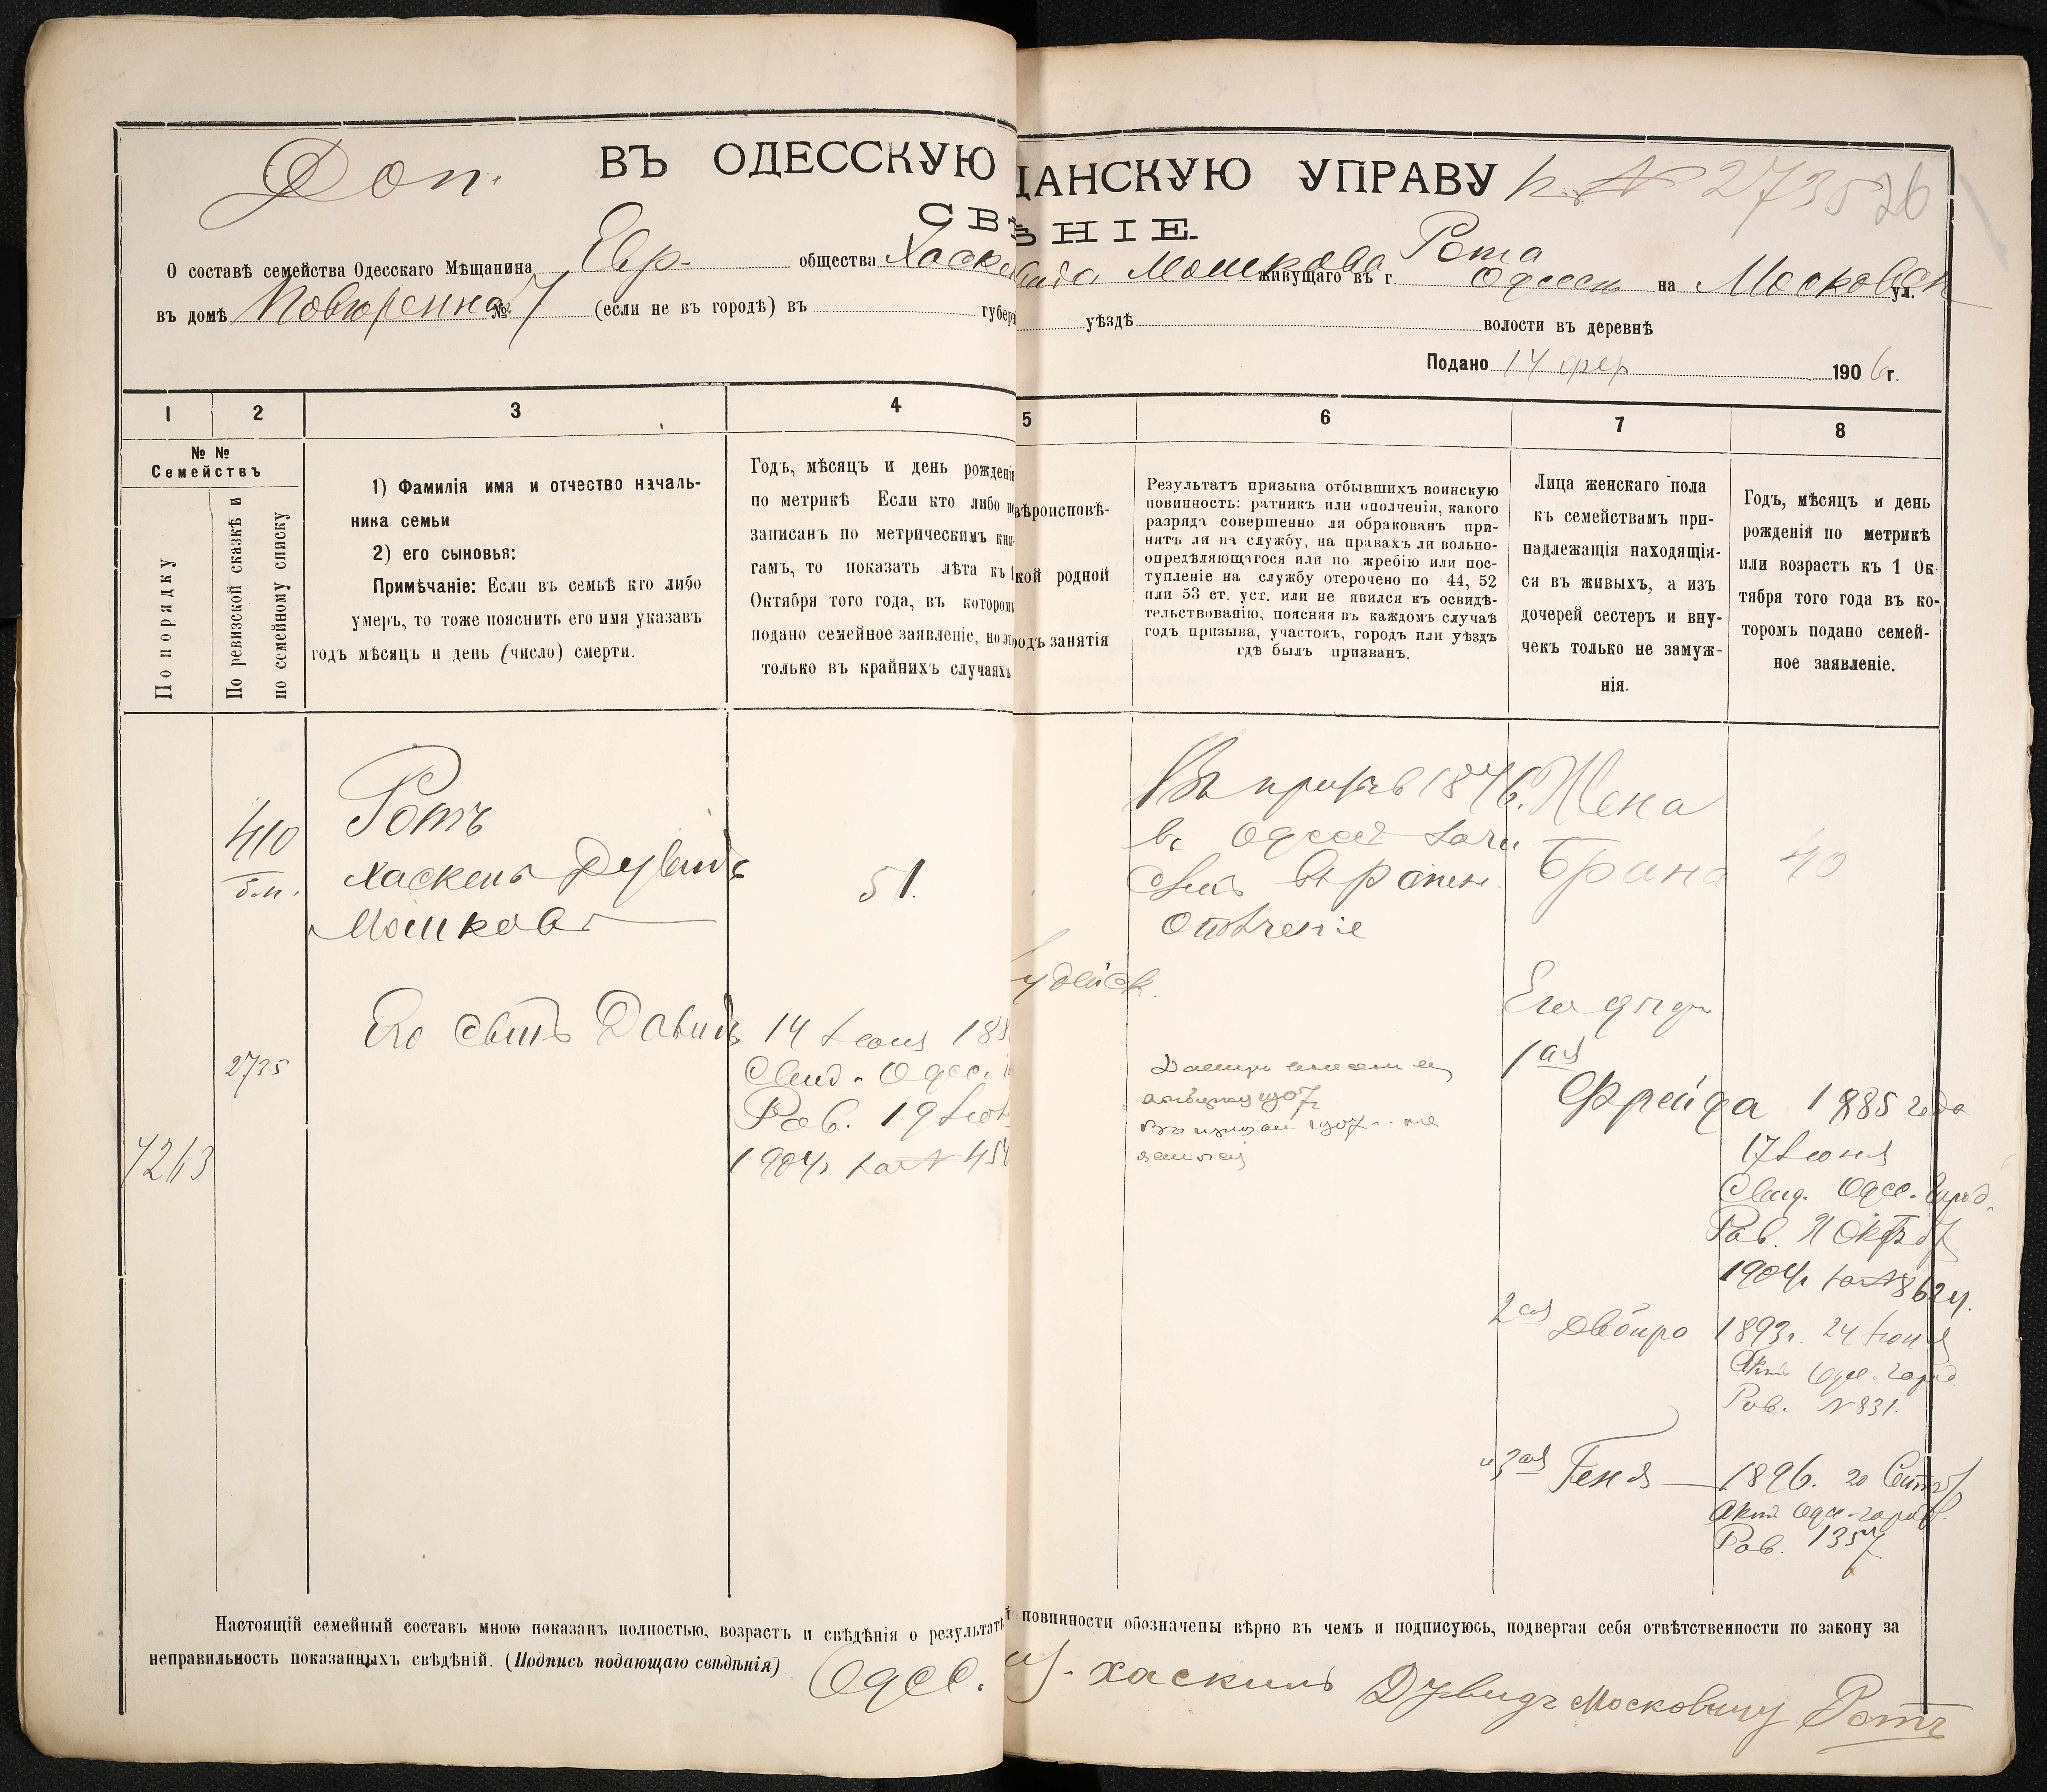 Доп. ВЪ ОДЕССКУЮ ЩАНСКУЮ УПРАВУ к № 2735
26
СВѢ НІЕ.
О составѣ семейства Одесскаго Мѣщанина Евр. общества Хаске Мошкова Рота живущаго въ г. Одессѣ на Московск ул.
въ домѣ № 7 (если не въ городѣ) въ губер уѣздѣ волости въ деревнѣ
Подано 14 фев 1906 г.
1 2 3 4 5 6 7 8
№ №
Семействъ
По порядку
По ревизской сказкѣ и
по семейному списку
1) Фамилія имя и отчество началь-
ника семьи
2) его сыновья:
Примѣчаніе: Если въ семьѣ кто либо
умеръ, то тоже пояснить его имя указавъ
годъ мѣсяцъ и день (число) смерти.
Годъ, мѣсяцъ и день рожденія
по метрикѣ Если кто либо не
записанъ по метрическимъ кни-
гамъ, то показать лѣта къ 1
Октября того года, въ которомъ
подано семейное заявленіе, но это
только въ крайнихъ случаяхъ
вѣроисповѣ-
кой родной
родъ занятія
Результатъ призыва отбывшихъ воинскую
повинность: ратникъ или ополченія, какого
разряда совершенно ли обракованъ при-
нятъ ли на службу, на правахъ ли вольно-
опредѣляющагося или по жребію или пос-
тупленіе на службу отсрочено по 44, 52
или 53 ст. уст. или не явился къ освидѣ-
тельствованію, поясняя въ каждомъ случаѣ
годъ призыва, участокъ, городъ или уѣздъ
гдѣ былъ призванъ.
Лица женскаго пола
къ семействамъ при-
надлежащія находящія-
ся въ живыхъ, а изъ
дочерей сестеръ и вну-
чекъ только не замуж-
нія.
Годъ, мѣсяцъ и день
рожденія по метрикѣ
или возрастъ къ 1 Ок-
тября того года въ ко-
торомъ подано семей-
ное заявленіе.
410
б.п.
Ротъ
Хаскель Дувидъ
Мошковъ
51.
удейск.
Въ 1876.
въ Одессѣ
въ
Ополченіе
Жена
Брина
40
2735
4263
Его сынъ Давидъ
14 Іюня 188
Свид. Одес.
Рав. 19
1904 г за № 454
1907 г.
1907 г. не
Его
1ая
Фрейда 1885 года
17 Іюня
Свид. Одес. Город.
Рав. Октяб
1904 г за № 8624.
2ая Двойра 1893 г. 24 Іюня
Актъ Одес. город
Рав. № 831.
и 3ая Геня 1896. 20 Сентяб
Актъ Одес. город.
Рав. 1357
Настоящій семейный составъ мною показанъ полностью, возрастъ и свѣдѣнія о результатѣ повинности обозначены вѣрно въ чемъ и подписуюсь, подвергая себя отвѣтственности по закону за
неправильность показанныхъ свѣдѣній. (Подпись подающаго свѣдѣнія) Одес. Хаскиль Дувидъ Московичу Ротъ